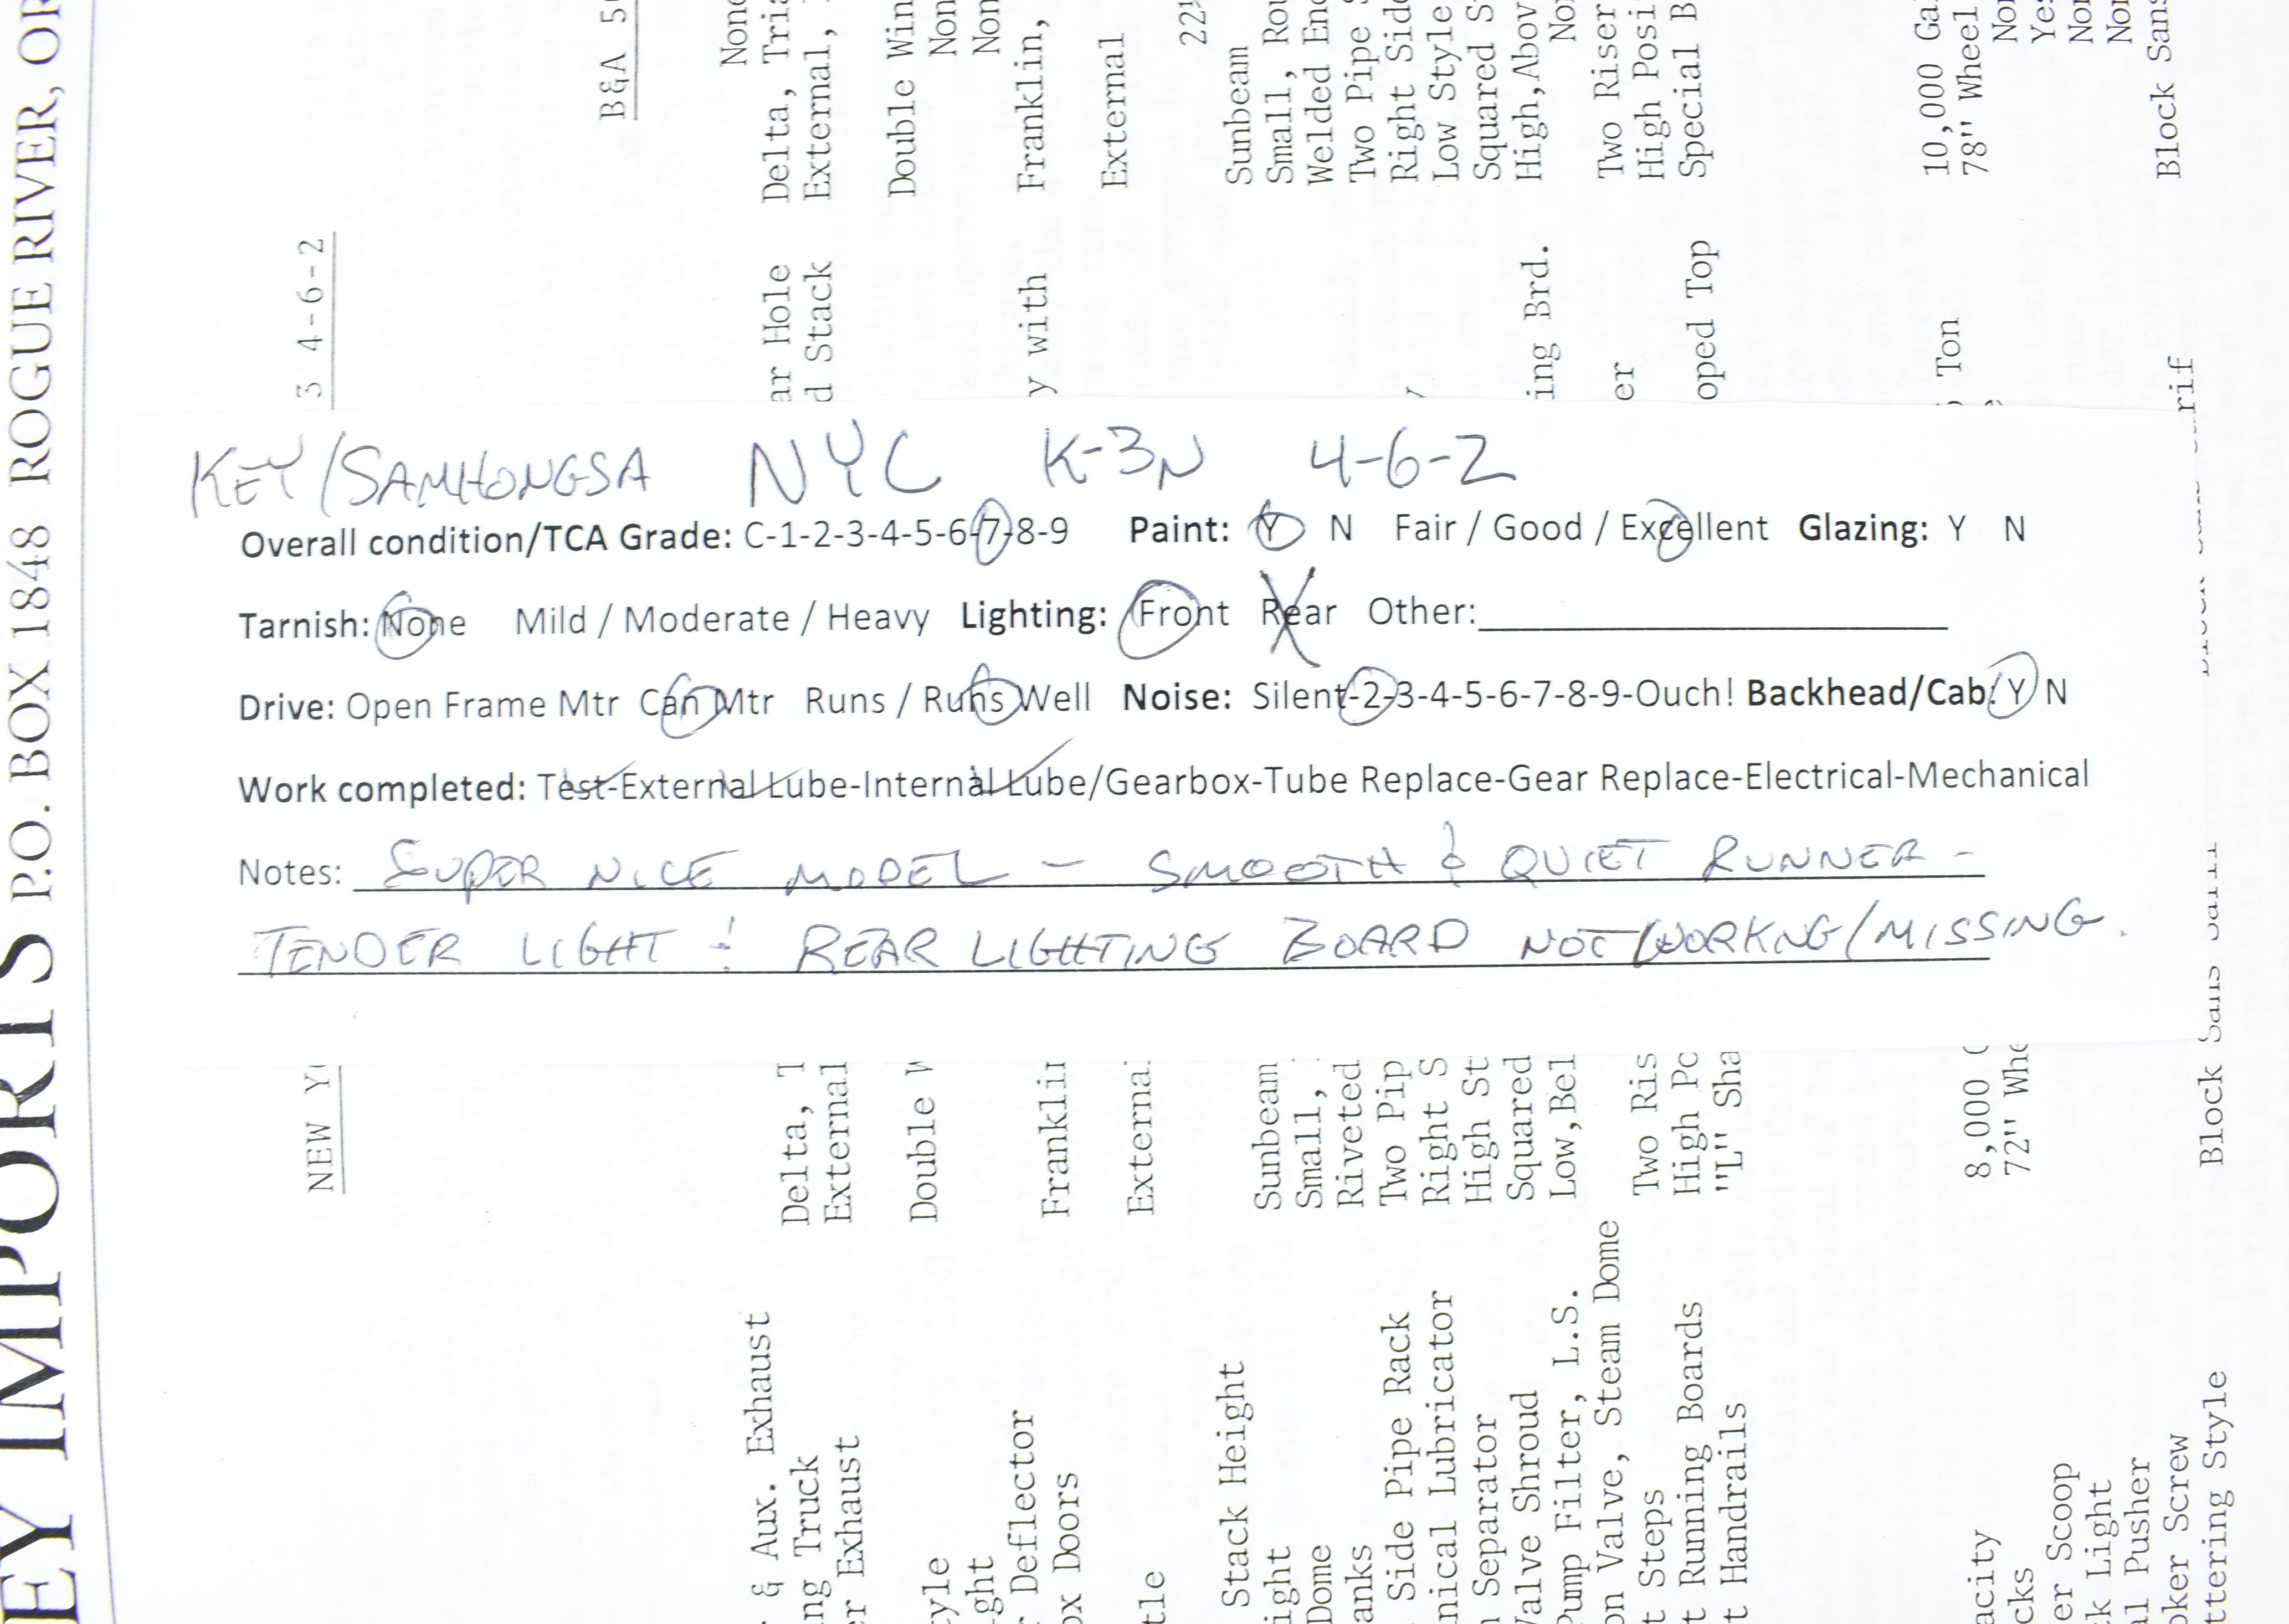 KEY/SAMHONGSA NYC K-3N 4-6-2
Overall condition/TCA Grade: C-1-2-3-4-5-6-7-8-9 Paint: Y N Fair / Good / Excellent Glazing: Y N
Tarnish: None Mild / Moderate / Heavy Lighting: Front Rear Other:
Drive: Open Frame Mtr Can Mtr Runs / Runs Well Noise: Silent-2-3-4-5-6-7-8-9-Ouch! Backhead/Cab: Y N
Work completed: Test-External Lube-Internal Lube/Gearbox-Tube Replace-Gear Replace-Electrical-Mechanical
Notes: SUPER NICE MODEL - SMOOTH & QUIET RUNNER -
TENDER LIGHT & REAR LIGHTING BOARD NOT WORKNG/MISSING.
EY IMPORTS P.O. BOX 1848 ROGUE RIVER, OR
NEW Y
3 4-6-2
B&A 5
Non
& Aux. Exhaust Delta, T ar Hole Delta, Tria
ng Truck External d Stack External,
er Exhaust
tyle Double W Double Win
ght Non
Deflector Non
ox Doors Franklin y with Franklin,
tle External External
Stack Height 22
ight Sunbeam Sunbeam
Dome Small, Small, Rou
anks Riveted Welded End
Side Pipe Rack Two Pip Two Pipe S
nical Lubricator Right S Right Side
Separator High St Low Style
Valve Shroud Squared Squared S
Pump Filter, L.S. Low, Bel ing Brd. High, Abov
on Valve, Steam Dome No
t Steps Two Ris er Two Riser
t Running Boards High Po High Posi
t Handrails "L" Sha oped Top Special B
acity 8,000 Ton 10,000 Ga
cks 72" Whe 78" Wheel
er Scoop Non
ck Light Yes
al Pusher Non
oker Screw Non
ttering Style Block Sans Serif Block Sans